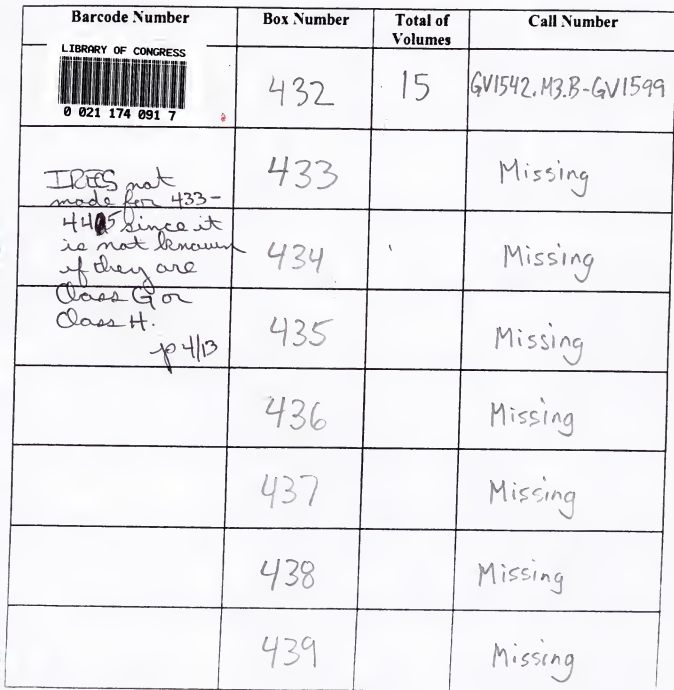 Barcode Number Box Number Total of Volumes Call Number
LIBRARY OF CONGRESS
0 021 174 091 7
432 15 GV1542.M3.B-GV1599
433 Missing
IRECS not
made for 433-
445 since it
is not known
if they are
Class G or
Class H.
jp 4/13
434 Missing
435 Missing
436 Missing
437 Missing
438 Missing
439 Missing